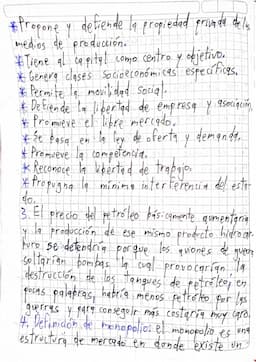 *Propone y defiende la propiedad privada de los
medios de producción.
*Tiene al capital como centro y objetivo.
*Genera clases socioeconómicas específicas.
*Permite la movilidad social.
*Defiende la libertad de empresa y asociación
*Promueve el libre mercado.
*Se basa en la ley de oferta y demanda.
*Promueve la competencia.
*Reconoce la libertad de trabajo.
*Propugna la mínima interferencia del esta-
do.
3. El precio del petróleo básicamente aumentaria
y la producción de ese mismo producto hidrocar-
buro se detendría porque los aviones de guerra
soltarían bombas la cual provocarían la
destrucción de los tanques de petróleo, en
pocas palabras, habría menos petróleo por las
guerras y para conseguir más costaría muy caro.
4. Definición de monopolio: el monopolio es una
estructura de mercado en donde existe un